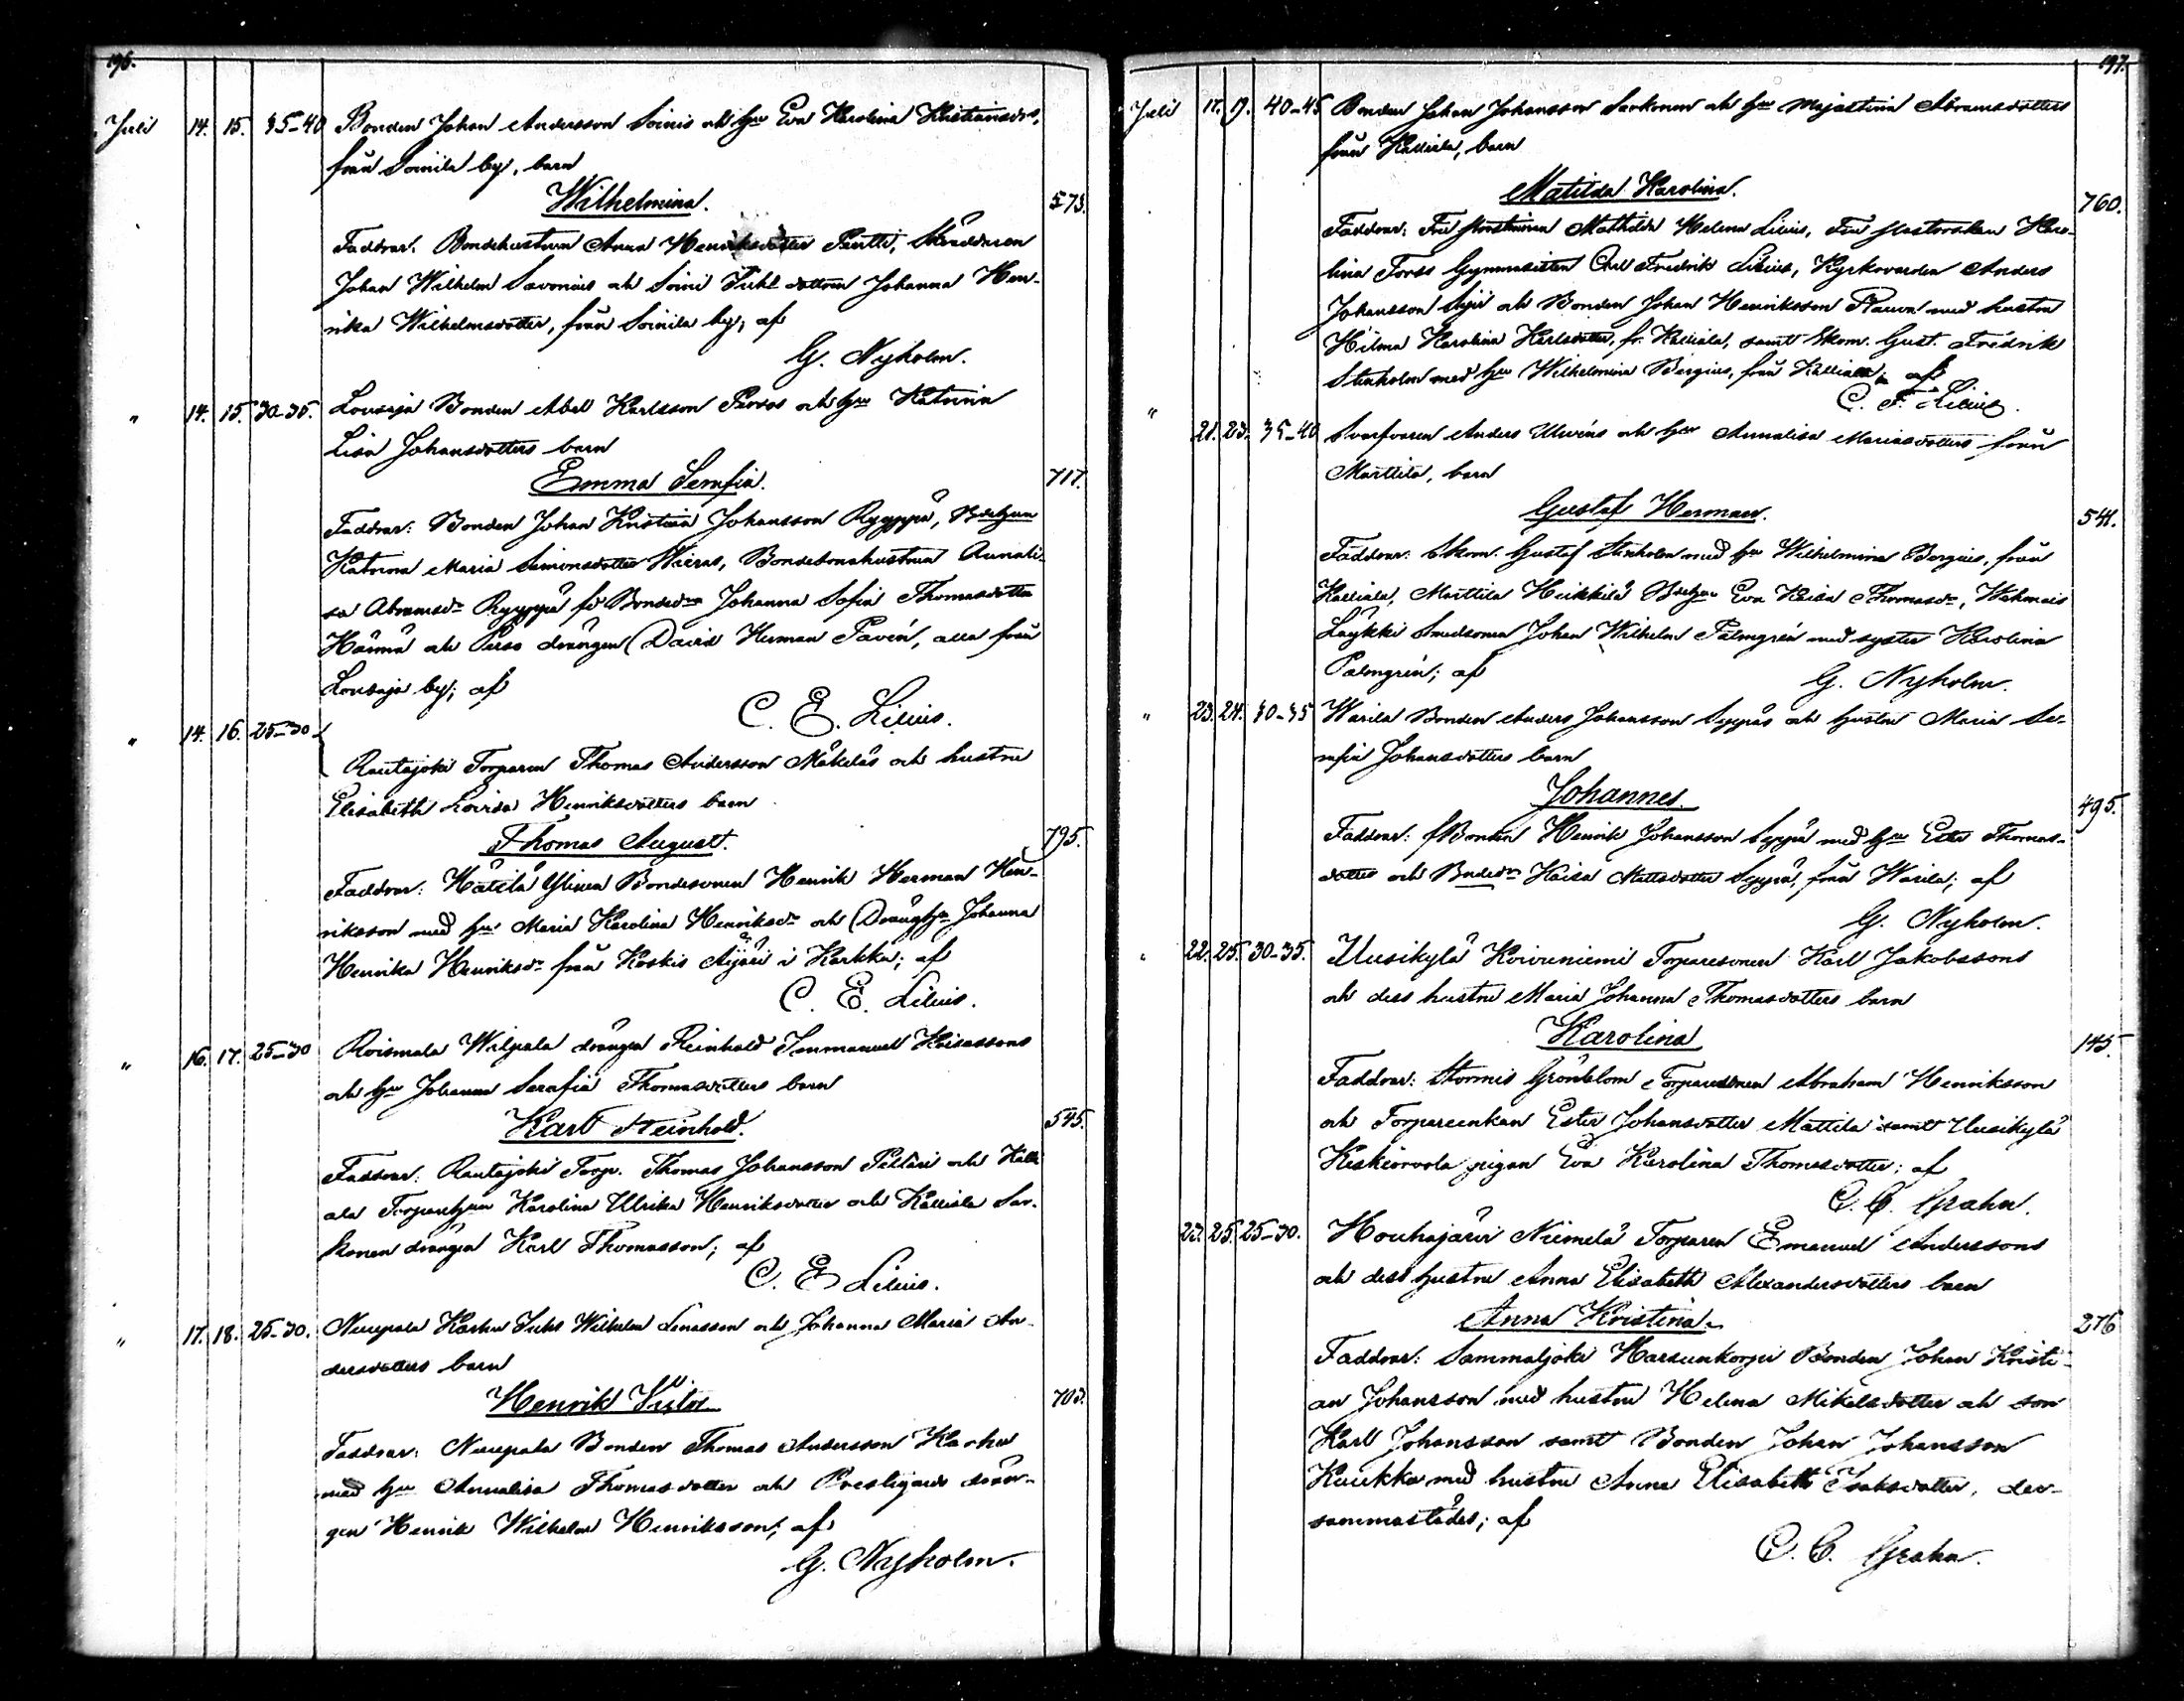 196.
Juli 14. 15. 35-40 Bonden Johan Andersson Soinis och hu Eva Karolina Kristiansdrs,
från Soinila by, barn
Wilhelmina. 573.
Faddrar: Bondehustrun Anna Henriksdotter Pentti, Skräddaren
Johan Wilhelm Savonius och Soini dottern Johanna Hen-
rika Wilhelmsdotter, från Soinila by; af
G. Nyholm.
" 14. 15. 30-35. Lousaja Bonden Abel Karlsson Persos och hu Katrina
Lisa Johansdotters barn
Emma Serafia. 717.
Faddrar: Bonden Johan Kristian Johansson Ryyppä,
Katrina Maria Simonsdotter Wieras, Bondesonahustrun Annali-
sa Abramsdr Ryyppä fd Bondedr Johanna Sofia Thomasdotter
Hännä och Perso drängen David Herman Pavén, alla från
Lousaja by; af
C. E. Lilius.
" 14. 16. 25-30 Rautajoki Torparen Thomas Andersson Mäkeläs och hustru
Elisabeth Lovisa Henriksdotters barn
Thomas August. 795.
Faddrar: Hätilä Ylinen Bondesonen Henrik Herman Hen-
riksson med hu Maria Karolina Henriksdr och Dränghu Johanna
Henrika Henriksdr från Koskis Äijälä i Karkku; af
C. E. Lilius.
" 16. 17. 25-30 Roismala Wilpala drängen Reinhold Immanuel Kaisassons
och hu Johanna Serafia Thomasdotters barn
Karl Reinhold. 545.
Faddrar: Rautajoki Torp. Thomas Johansson Peltari och Kalli
ala Torparehun Karolina Ulrika Henriksdotter och Kalliala Sar-
konen drängen Karl Thomasson; af
C. E. Lilius.
" 17. 18. 25-30. Nuupala Karhu Wilhelm Linasson och Johanna Maria An-
dersdotters barn
Henrik Viktor 703.
Faddrar: Nuupala Bonden Thomas Andersson Karhu
med hu Annalisa Thomasdotter och Prestgårds drän-
gen Henrik Wilhelm Henriksson; af
G. Nyholm.
197.
Juli 17. 19. 40-45 Bonden Johan Johansson Sarkonen och hu Majastina Abramsdotters
från Kalliala, barn
Matilda Karolina. 760.
Faddrar: Fru Prostinnan Mathilda Helena Lilius, Fru Pastorskan Karo-
lina Forss Gymnasisten Carl Fredrik Lilius, Kyrkovärden Anders
Johansson och Bonden Johan Henriksson med hustru
Hilma Karolina Karlsdotter, fr. Kalliala, samt Skom. Gust. Fredrik
Stenholm med hu Wilhelmina Bergius, från Kalliala; af
C. F. Lilius.
" 21. 23. 35-40 Svarfvaren Anders Ulvéns och hu Annalisa Mariasdotters från
Marttila, barn
Gustaf Herman. 541.
Faddrar: Skom. Gustaf Stenholm med hu Wilhelmina Bergius, från
Kalliala, Marttila Heikkilä Eva Kaisa Thomasdr, Wehmais
Laykki Smedsonen Johan Wilhelm Palmgrén med syster Karolina
Palmgrén; af
G. Nyholm.
" 23. 24. 30-35 Warila Bonden Anders Johansson Seppäs och hustru Maria Se-
rafia Johansdotters barn
Johannes. 495.
Faddrar: f Bonden Henrik Johansson Seppä med hu Ester Thomas-
dotter och Bondedr Kaisa Mattsdotter Seppä, från Warila; af
G. Nyholm.
" 22. 25. 30-35. Uusikylä Koivuniemi Torparesonen Karl Jakobssons
och dess hustru Maria Johanna Thomasdotters barn
Karolina 145.
Faddrar: Stormis Grönblom Torparesonen Abraham Henriksson
och Torpareenkan Ester Johansdotter Mattila samt Uusikylä
Keskiorvola pigan Eva Karolina Thomasdotter; af
C. C. Grahn.
23. 25. 25-30. Houhajärvi Niemelä Torparen Emanuel Anderssons
och dess hustru Anna Elisabeth Alexandersdotters barn
Anna Kristina. 276
Faddrar: Sammaljoki Harsunkorpi Bonden Johan Kristi-
an Johansson med hustru Helena Mikelsdotter och son
Karl Johansson samt Bonden Johan Johansson
Kuukka med hustru Anna Elisabeth Isaksdotter, der-
sammastädes; af
C. C. Grahn.